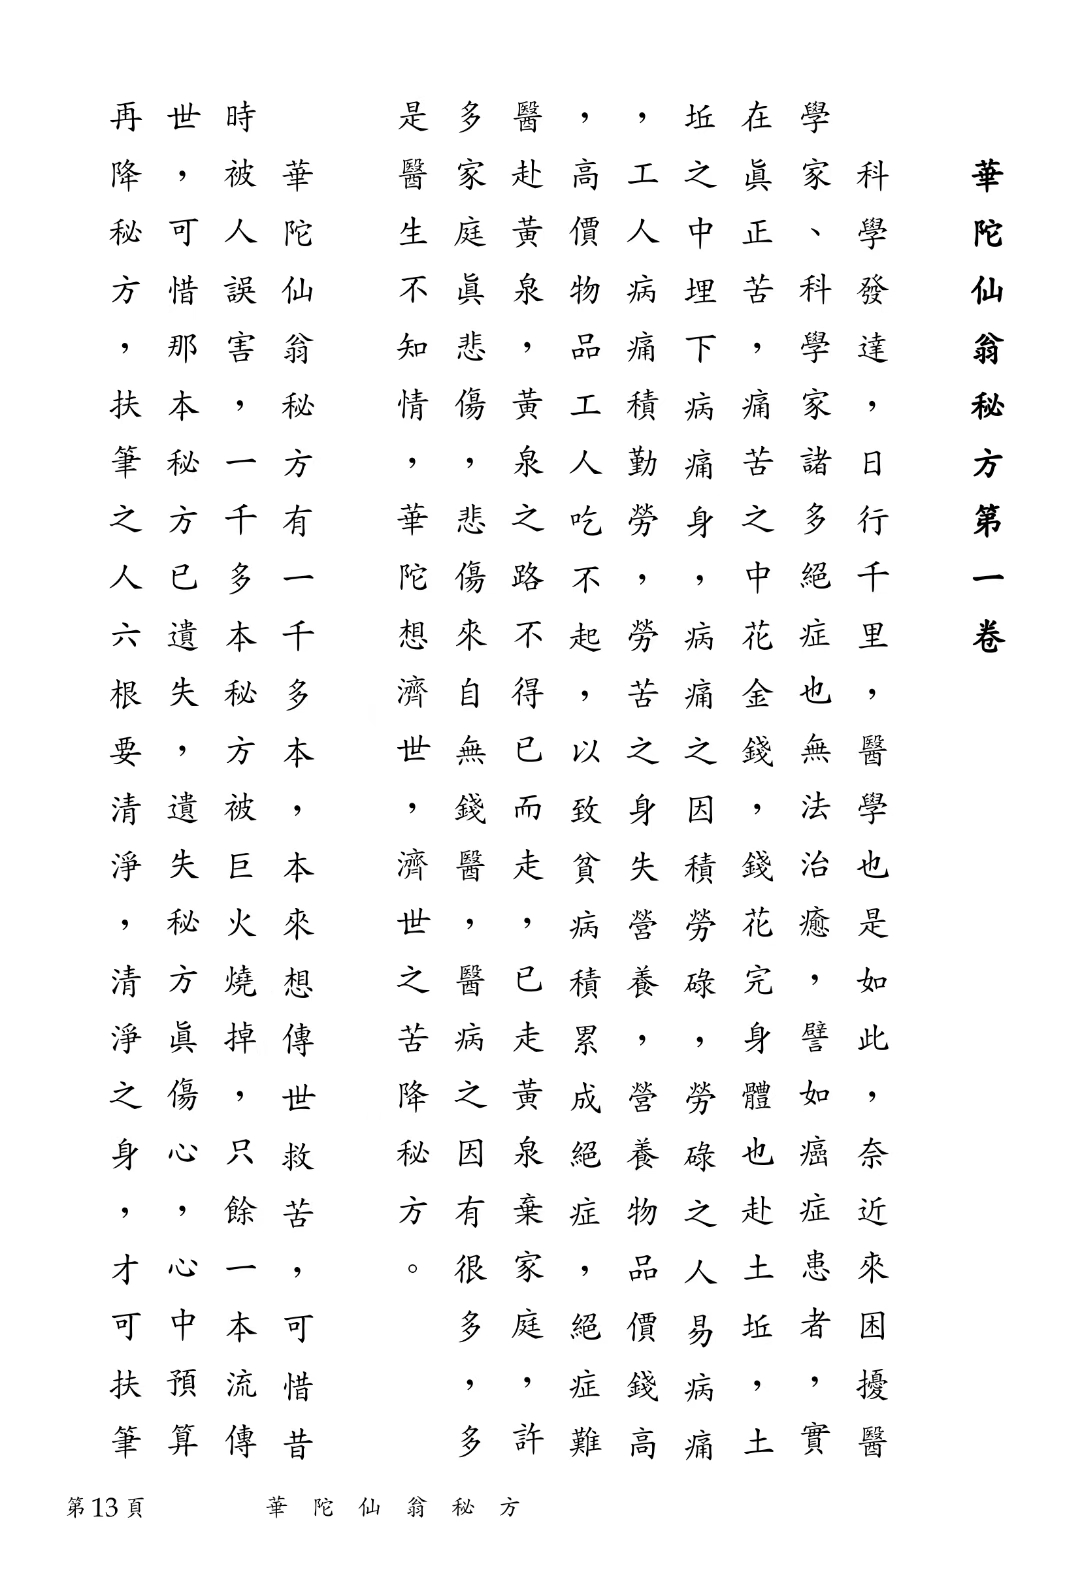 華陀仙翁秘方第一卷
科學發達，日行千里，醫學也是如此，奈近來困擾醫
學家、科學家諸多絕症也無法治癒，譬如癌症患者，實
在眞正苦，痛苦之中花金錢，錢花完身體也赴土坵，土
坵之中埋下病痛身，病痛之因積勞碌，勞碌之人易病痛
，工人病痛積勤勞，勞苦之身失營養，營養物品價錢高
，高價物品工人吃不起，以致貧病積累成絕症，絕症難
醫赴黃泉，黃泉之路不得已而走，已走黃泉棄家庭，許
多家庭眞悲傷，悲傷來自無錢醫，醫病之因有很多，多
是醫生不知情，華陀想濟世，濟世之苦降秘方。
華陀仙翁秘方有一千多本，本來想傳世救苦，可惜昔
時被人誤害，一千多本秘方被巨火燒掉，只餘一本流傳
世，可惜那本秘方已遺失，遺失秘方眞傷心，心中預算
再降秘方，扶筆之人六根要清淨，清淨之身，才可扶筆
第13頁 華陀仙翁秘方